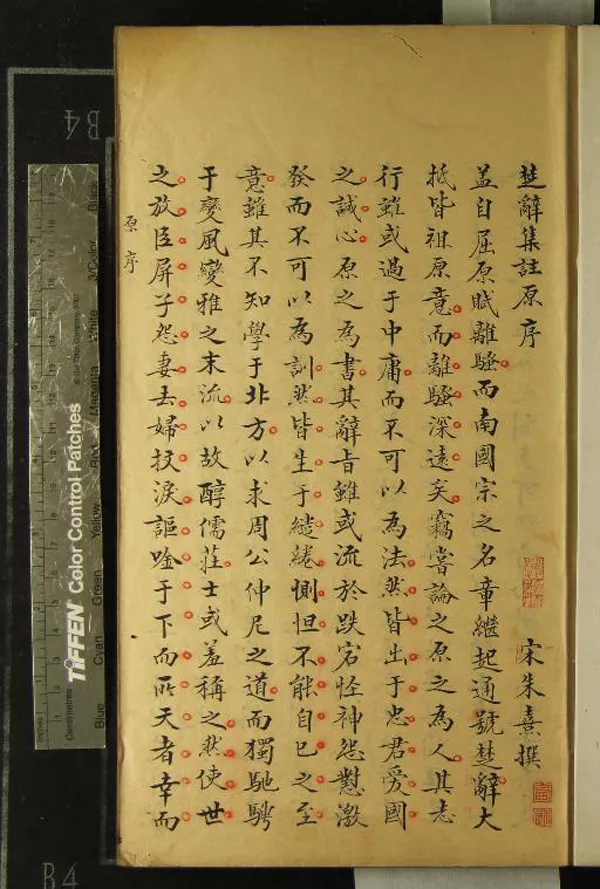 楚辭集註原序
宋朱熹撰
蓋自屈原賦離騷而南國宗之名章繼起通號楚辭大
抵皆祖原意而離騷深遠矣竊嘗論之原之為人其志
行雖或過于中庸而不可以為法然皆出于忠君愛國
之誠心原之為書其辭旨雖或流於跌宕怪神怨懟激
發而不可以為訓然皆生于繾綣惻怛不能自已之至
意雖其不知學于北方以求周公仲尼之道而獨馳騁
于變風變雅之末流以故醇儒莊士或羞稱之然使世
之放臣屏子怨妻去婦抆淚謳唫于下而所天者幸而
原序
B4
B4
TIFFEN® Color Control Patches
Centimetres
Inches
Blue
Cyan
Green
Yellow
Red
Magenta
White
3/Color
Black